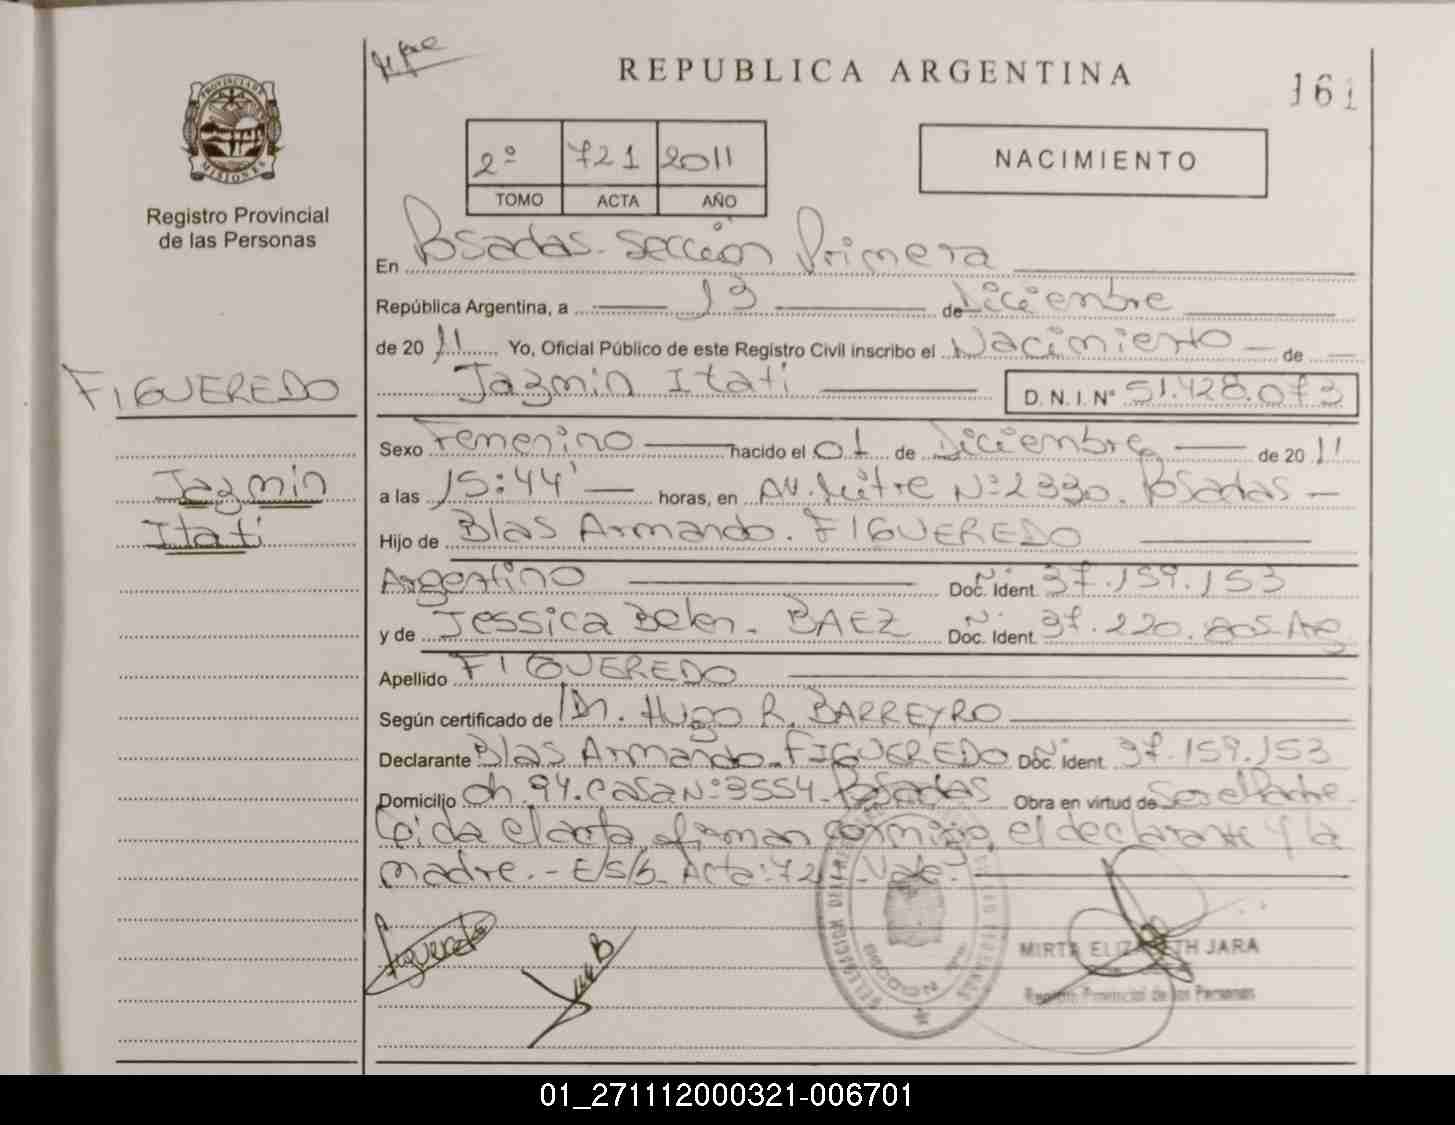 REPUBLICA ARGENTINA
161
PROVINCIA DE MISIONES
Registro Provincial
de las Personas
2º 721 2011
TOMO ACTA AÑO
NACIMIENTO
En Posadas - Sección Primera
República Argentina, a 13 de Diciembre
de 2011 Yo, Oficial Público de este Registro Civil inscribo el Nacimiento de
FIGUEREDO
Jazmin Itati D.N.I. Nº 51.428.073
Sexo Femenino nacido el 01 de Diciembre de 2011
Jazmin
a las 15:44' horas, en Av. Mitre Nº 2330. Posadas
Itati
Hijo de Blas Armando. FIGUEREDO
Argentino Doc. Ident. Nº 37.159.153
y de Jessica Belen. BAEZ Doc. Ident. Nº 37.220.805 Arg
Apellido FIGUEREDO
Según certificado de Dr. Hugo R. BARREYRO
Declarante Blas Armando. FIGUEREDO Doc. Ident. Nº 37.159.153
Domicilio Ch. 94. Casa Nº 3554 - Posadas Obra en virtud de Ser el Padre
Leida el acta, firman conmigo el declarante y la
madre. - E/S/b. Acta: 721 - Vale.
Figueredo
MIRTA ELIZABETH JARA
Registro Provincial de las Personas
01_271112000321-006701